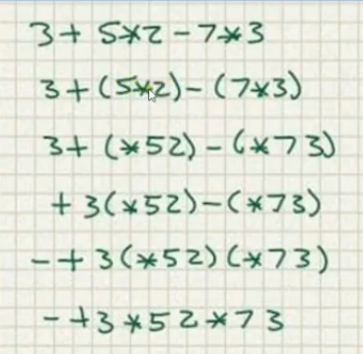 3 + 5*2 - 7*3
3 + (5*2) - (7*3)
3 + (*52) - (*73)
+ 3(*52) - (*73)
- + 3(*52)(*73)
- +3*52*73